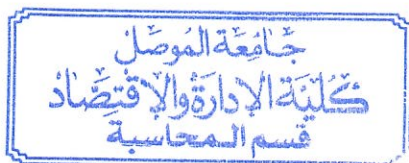 جَامِعَة المُوصَل
كُليَة الإدارَة وَالإقتِصَاد
قسم المحاسبة